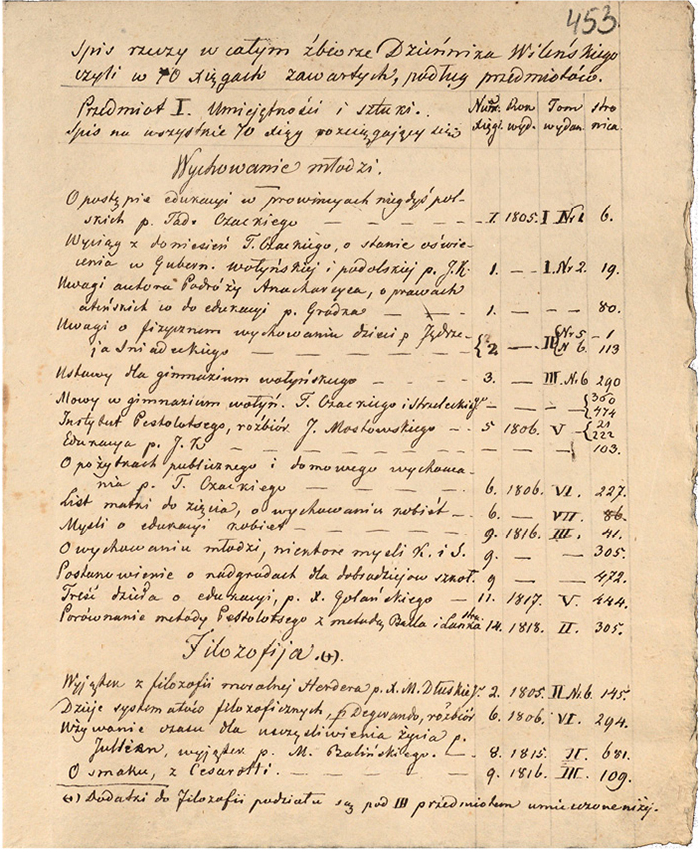 453
Spis rzeczy w całym zbiorze Dziennika Wileńskiego
czyli w 70 xięgach zawartych, podług przedmiotów.
Przedmiot I. Umiejętności i sztuki. Num. Rok Tom stro
Spis na wszystkie 70 xiąg rozciągający się xięgi. wyd. wydan. nica.
Wychowanie młodzi.
O postępie edukacyi w prowincyach niegdyś pol-
skich p. Tad. Czackiego — — — — 1. 1805. I Nr 1 6.
Wyciąg z doniesień T. Czackiego, o stanie oświe-
cenia w Gubern. wołyńskiej i podolskiej p. J.K. 1. — I. Nr 2. 19.
Uwagi autora Podróży Anacharsysa, o prawach
ateńskich co do edukacyi p. Grodka — — 1. — — 80.
Uwagi o fizycznem wychowaniu dzieci p Jędrze- {Nr 5 — 1
ja Śniadeckiego — — — — {2. — II N 6. 113
Ustawy dla gimnazium wołyńskiego - - - - 3. — III. N. 6 290
Mowy w gimnazium wołyń. T. Czackiego i Strzeleckieg° — — — {350 474
Instytut Pestolotsego, rozbiór J. Mostowskiego — 5 1806. V — {21 222
Edukacya p. J. K — — — — — — — — 103.
O pożytkach publicznego i domowego wychowa-
nia p. T. Czackiego — — — — 6. 1806. VI. 227.
List matki do zięcia, o wychowaniu kobiet — 6. — VII. 86.
Mysli o edukacyi kobiet — — — — 9. 1816. III. 41.
O wychowaniu młodzi, niektore mysli K. i S. 9. — — 305.
Postanowienie o nadgrodach dla dobrodziejow szkoł. 9 — — 472.
Treść dzieła o edukacyi, p. X. Golańskiego — 11. 1817. V. 444.
Porównanie metody Pestolotsego z metodą Bella i Lankastra 14. 1818. II. 305.
Filozofija (*).
Wyjątek z filozofii moralnej Herdera p. X. M. Dłuskieg° 2. 1805. II N. 6. 145.
Dzieje systematów filozoficznych, p Degerando, rozbiór 6. 1806. VI. 294.
Używanie czasu dla uszczęśliwienia życia p.
Jullien, wyjątek p. M. Balińskiego. — 8. 1815. II. 681.
O smaku, z Cesarotti. — — — — 9. 1816. III. 109.
(*) Dodatki do Filozofii podziału są pod III przedmiotem umieszczone niżej.